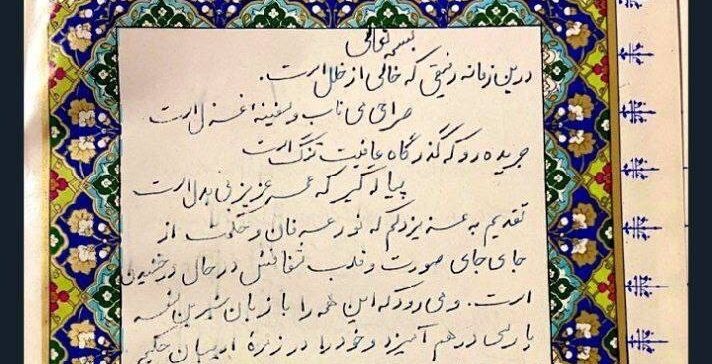 بسمه تعالی
درین زمانه رفیقی که خالی از خلل است.
صراحی می ناب و سفینه غزل است
جریده رو که گذرگاه عافیت تنگ است
پیاله گیر که عمر عزیز بی بدل است
تقدیم به عزیز دلم که نور عرفان و حکمت از
جای جای صورت و قلب شفافش در حال درخشیدن
است. و می رود که این همه را با زبان شیرین
پارسی درهم آمیزد و خود را در زمرهٔ ادیبان حکیم